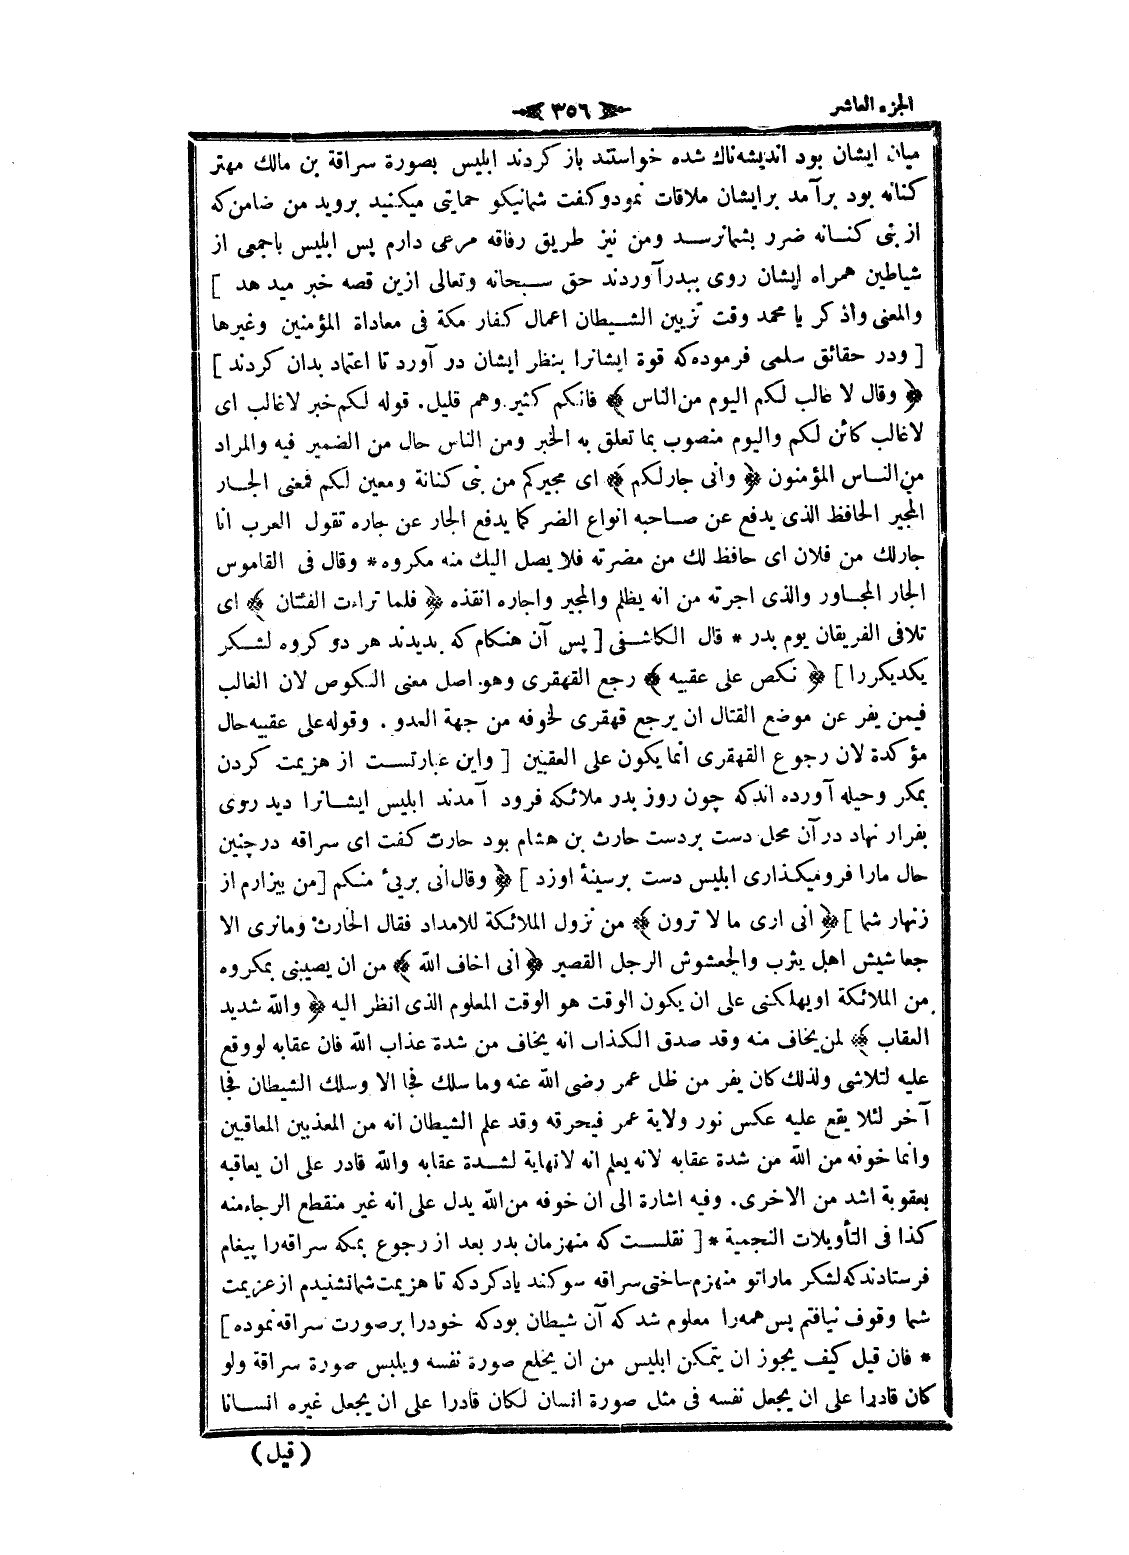 الجزء العاشر
٣٥٦
ميان ايشان بود انديشه‌ناك شده خواستند باز كردند ابليس بصورة سراقة بن مالك مهتر
كنانه بود برآمد برايشان ملاقات نمودوكفت شمانيكو حمايتى ميكنيد برويد من ضامن‌كه
از بنى كنانه ضرر بشمانرسد ومن نيز طريق رفاقه مرعى دارم پس ابليس باجمعى از
شياطين همراه ايشان روى ببدرآوردند حق سبحانه وتعالى ازين قصه خبر ميد هد ]
والمعنى واذكر يا محمد وقت تزيين الشيطان اعمال كفار مكة فى معاداة المؤمنين وغيرها
[ ودر حقائق سلمى فرموده‌كه قوة ايشانرا بنظر ايشان در آورد تا اعتماد بدان كردند ]
﴿ وقال لا غالب لكم اليوم من الناس ﴾ فانكم كثير وهم قليل. قوله لكم خبر لاغالب اى
لاغالب كائن لكم واليوم منصوب بما تعلق به الخبر ومن الناس حال من الضمير فيه والمراد
من الناس المؤمنون ﴿ وانى جارلكم ﴾ اى مجيركم من بنى كنانة ومعين لكم فمعنى الجار
المجير الحافظ الذى يدفع عن صاحبه انواع الضر كما يدفع الجار عن جاره تقول العرب انا
جارلك من فلان اى حافظ لك من مضرته فلا يصل اليك منه مكروه* وقال فى القاموس
الجار المجاور والذى اجرته من انه يظلم والمجير واجاره انقذه ﴿ فلما تراءت الفئتان ﴾ اى
تلافى الفريقان يوم بدر * قال الكاشفى [ پس آن هنكام كه بديدند هر دو كروه لشكر
يكديكررا ] ﴿ نكص على عقبيه ﴾ رجع القهقرى وهو. اصل معنى النكوص لان الغالب
فيمن يفر عن موضع القتال ان يرجع قهقرى لخوفه من جهة العدو . وقوله على عقبيه حال
مؤكدة لان رجوع القهقرى انما يكون على العقبين [ واين عبارتست از هزيمت كردن
بمكر وحيله آورده اندكه چون روز بدر ملائكه فرود آمدند ابليس ايشانرا ديد روى
بفرار نهاد درآن محل دست بردست حارث بن هشام بود حارث كفت اى سراقه درچنين
حال مارا فروميكذارى ابليس دست برسينۀ اوزد ] ﴿ وقال انى برئ منكم [من بيزارم از
زنهار شما ] ﴿ انى ارى ما لا ترون ﴾ من نزول الملائكة للامداد فقال الحارث ومانرى الا
جعاشيش اهل يثرب والجعشوش الرجل القصير ﴿ انى اخاف الله ﴾ من ان يصيبنى بمكروه
من الملائكة اويهلكنى على ان يكون الوقت هو الوقت المعلوم الذى انظر اليه ﴿ والله شديد
العقاب ﴾ لمن يخاف منه وقد صدق الكذاب انه يخاف من شدة عذاب الله فان عقابه لو وقع
عليه لتلاشى ولذلك كان يفر من ظل عمر رضى الله عنه وما سلك فجا الا وسلك الشيطان فجا
آخر لئلا يقع عليه عكس نور ولاية عمر فيحرقه وقد علم الشيطان انه من المعذبين المعاقبين
وانما خوفه من الله من شدة عقابه لانه يعلم انه لانهاية لشدة عقابه والله قادر على ان يعاقبه
بعقوبة اشد من الاخرى. وفيه اشارة الى ان خوفه من الله يدل على انه غير منقطع الرجاء منه
كذا فى التأويلات النجمية * [ نقلست كه منهزمان بدر بعد از رجوع بمكه سراقه‌را پيغام
فرستادندكه لشكر ماراتو منهزم ساختى سراقه سوكند يادكردكه تا هزيمت شمانشنيدم از عزيمت
شما وقوف نيافتم پس همه‌را معلوم شدكه آن شيطان بودكه خودرا برصورت سراقه نموده ]
* فان قيل كيف يجوز ان يتمكن ابليس من ان يخلع صورة نفسه ويلبس صورة سراقة ولو
كان قادرا على ان يجعل نفسه فى مثل صورة انسان لكان قادرا على ان يجعل غيره انسانا
( قيل )